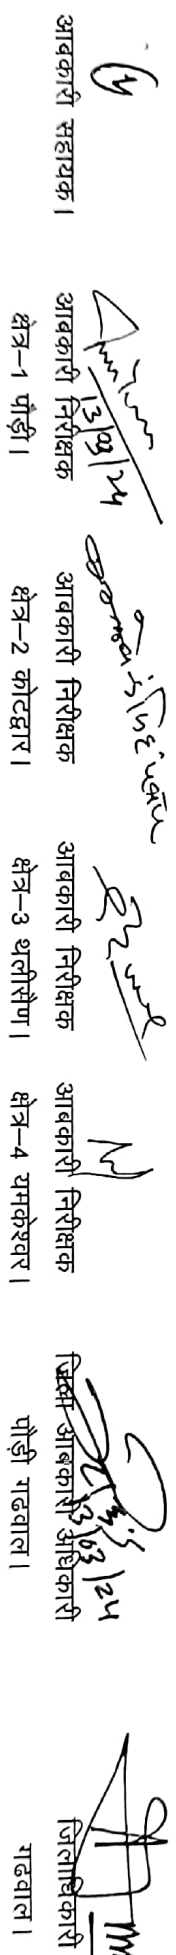 आबकारी सहायक।
13/03/24
आबकारी निरीक्षक
क्षेत्र-1 पौड़ी।
आबकारी निरीक्षक
क्षेत्र-2 कोटद्वार।
आबकारी निरीक्षक
क्षेत्र-3 थलीसैण।
आबकारी निरीक्षक
क्षेत्र-4 यमकेश्वर।
13/03/24
जिला आबकारी अधिकारी
पौड़ी गढवाल।
जिलाधिकारी
गढवाल।